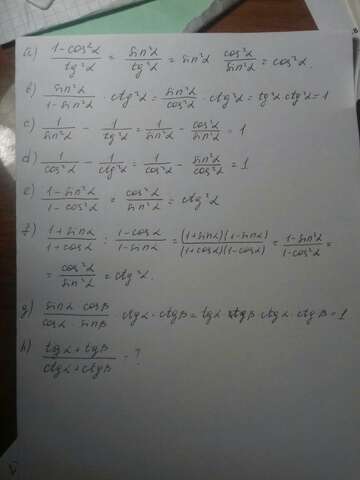 a) (1-cos²α)/(tg²α) = (sin²α)/(tg²α) = sin²α · (cos²α)/(sin²α) = cos²α.
b) (sin²α)/(1-sin²α) · ctg²α = (sin²α)/(cos²α) · ctg²α = tg²α · ctg²α = 1
c) 1/(sin²α) - 1/(tg²α) = 1/(sin²α) - (cos²α)/(sin²α) = 1
d) 1/(cos²α) - 1/(ctg²α) = 1/(cos²α) - (sin²α)/(cos²α) = 1
e) (1-sin²α)/(1-cos²α) = (cos²α)/(sin²α) = ctg²α
f) (1+sinα)/(1+cosα) : (1-cosα)/(1-sinα) = ((1+sinα)(1-sinα))/((1+cosα)(1-cosα)) = (1-sin²α)/(1-cos²α) =
= (cos²α)/(sin²α) = ctg²α.
g) (sinα · cosβ)/(cosα · sinβ) · ctgα · ctgβ = tgα ctgβ ctgα · ctgβ = 1
h) (tgα + tgβ)/(ctgα + ctgβ) - ?